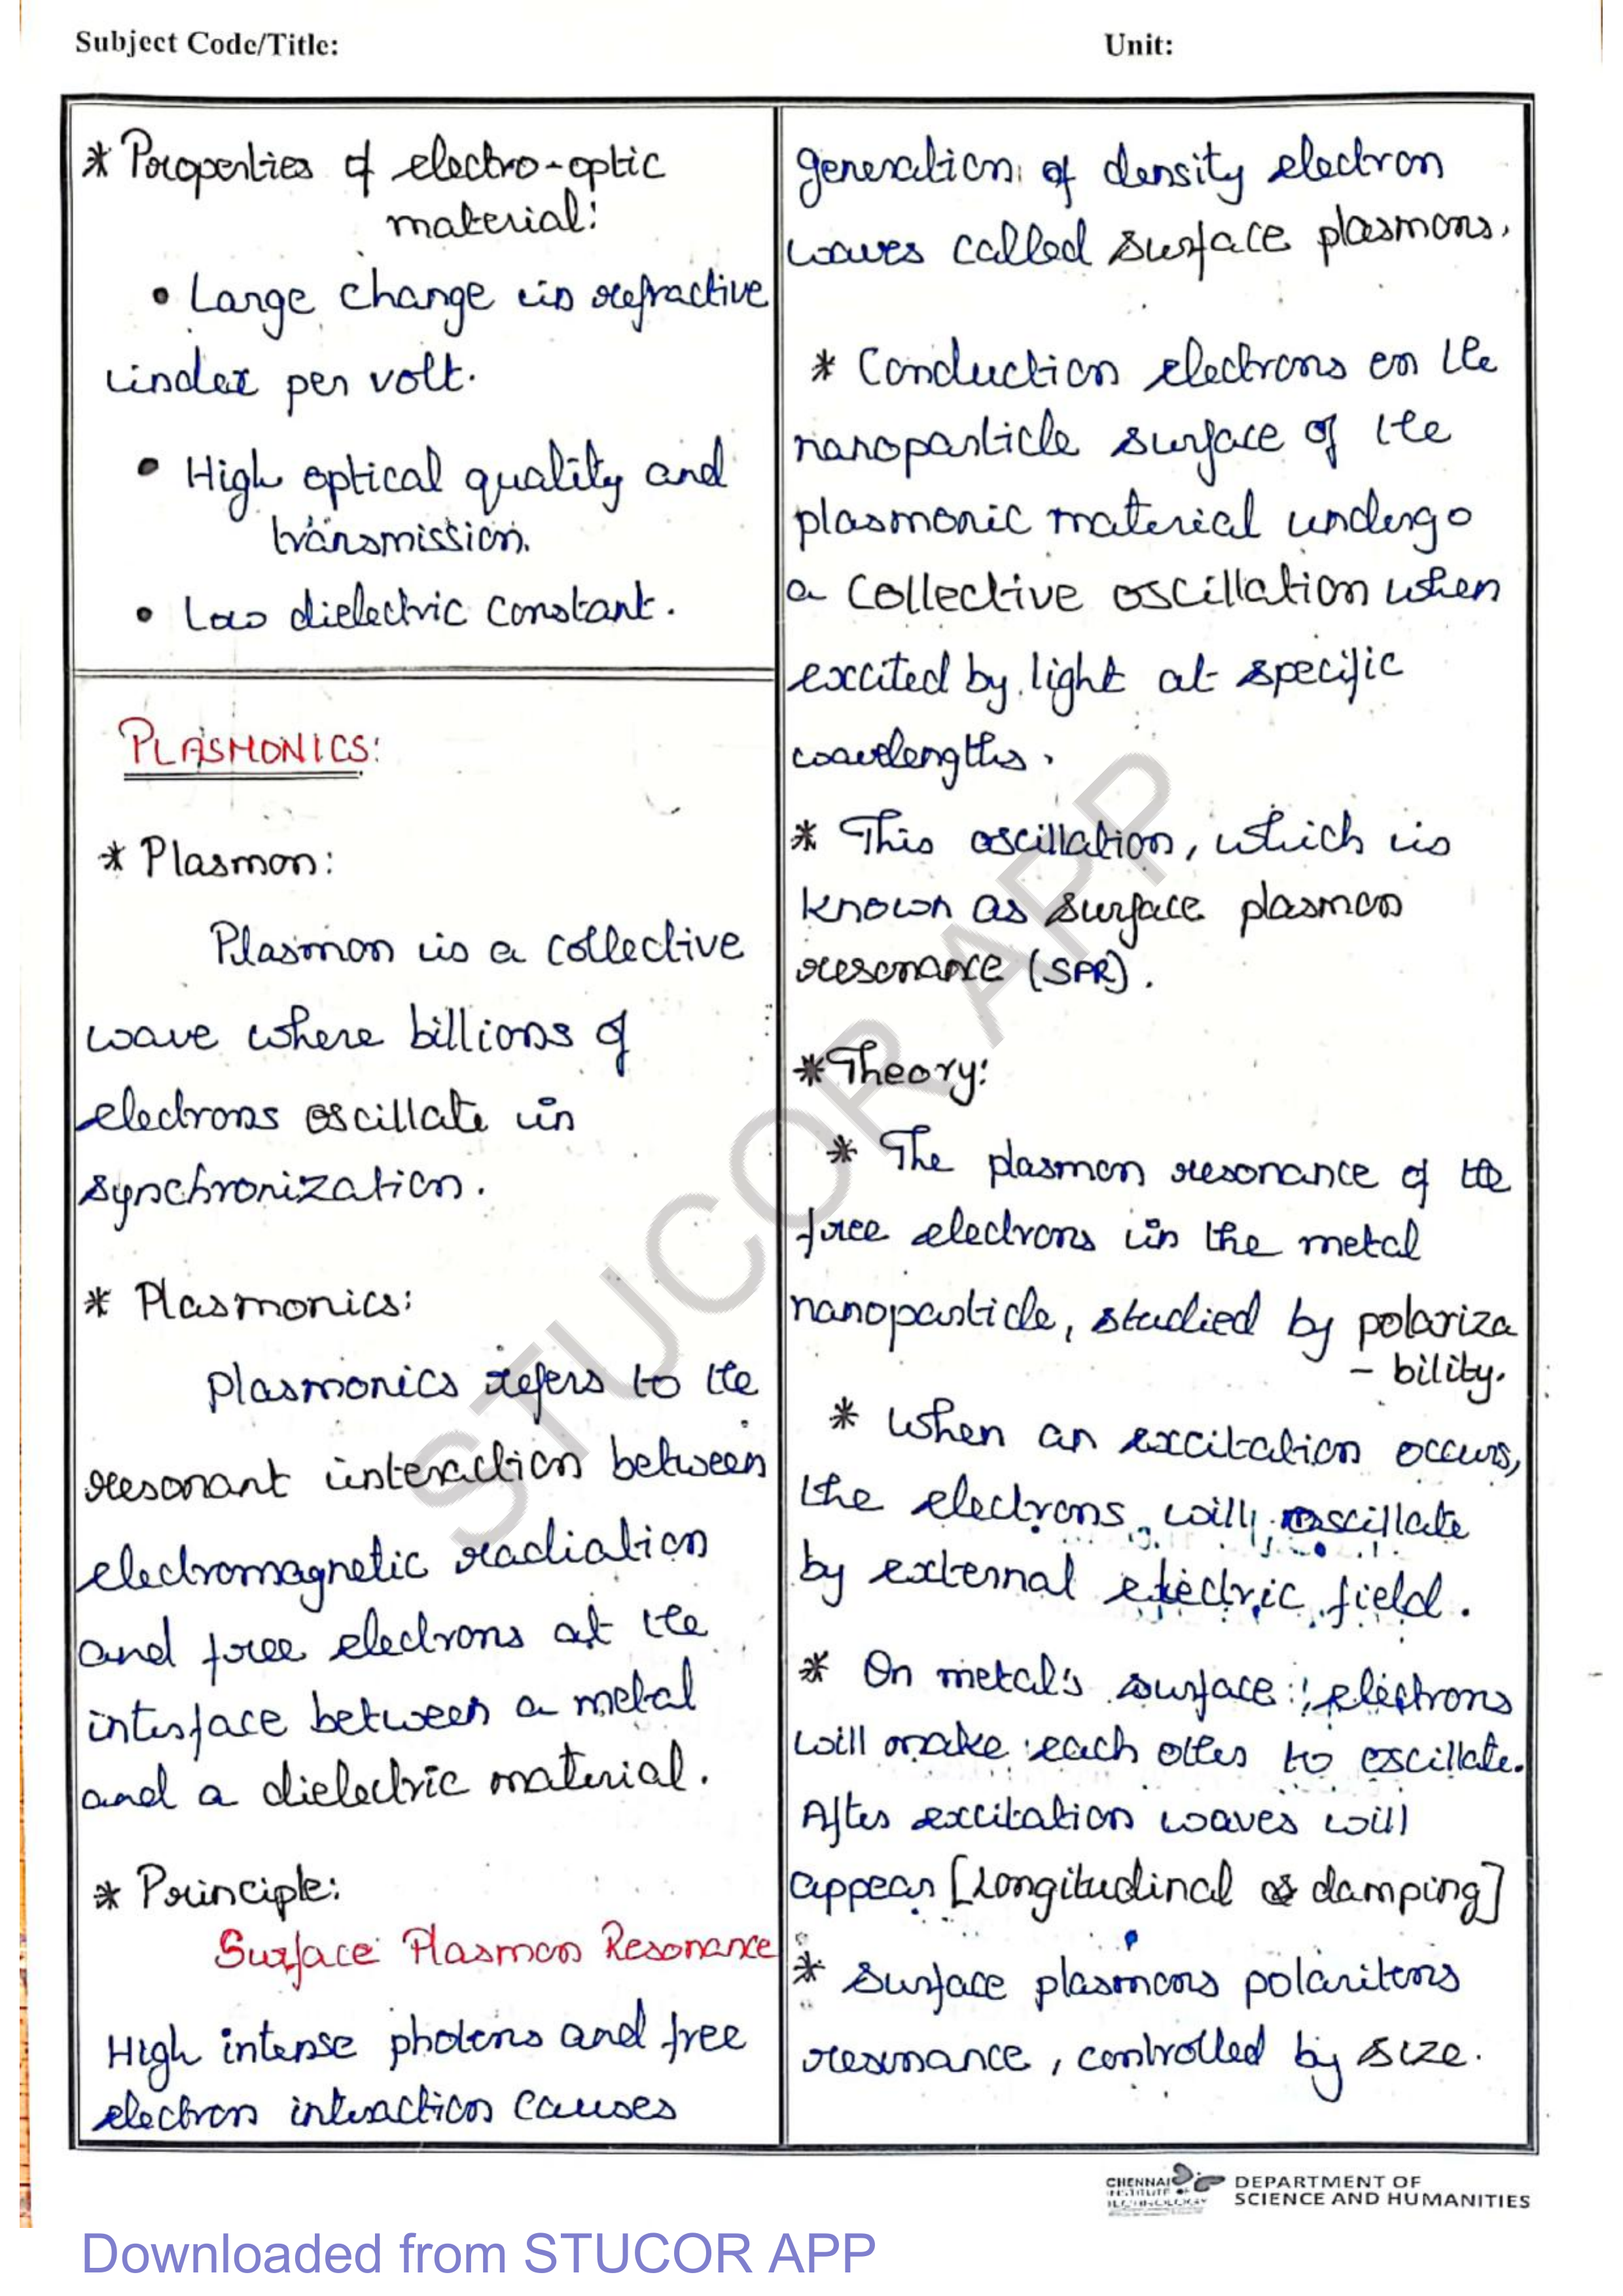 Subject Code/Title:
Unit:
* Properties of electro-optic
material:
• Large change in refractive
index per volt.
• High optical quality and
transmission.
• Low dielectric constant.
PLASMONICS:
* Plasmon:
Plasmon is a collective
wave where billions of
electrons oscillate in
synchronization.
* Plasmonics:
Plasmonics refers to the
resonant interaction between
electromagnetic radiation
and free electrons at the
interface between a metal
and a dielectric material.
* Principle:
Surface Plasmon Resonance
High intense photons and free
electron interaction causes
generation of density electron
waves called surface plasmons.
* Conduction electrons on the
nanoparticle surface of the
plasmonic material undergo
a collective oscillation when
excited by light at specific
wavelengths.
* This oscillation, which is
known as surface plasmon
resonance (SPR).
* Theory:
* The plasmon resonance of the
free electrons in the metal
nanoparticle, studied by polariza
- bility.
* When an excitation occurs,
the electrons will oscillate
by external electric field.
* On metal's surface electrons
will make each other to oscillate.
After excitation waves will
appear [Longitudinal or damping]
* Surface plasmons polaritons
resonance, controlled by size.
STUCOR APP
CHENNAI
INSTITUTE OF
TECHNOLOGY
DEPARTMENT OF
SCIENCE AND HUMANITIES
Downloaded from STUCOR APP